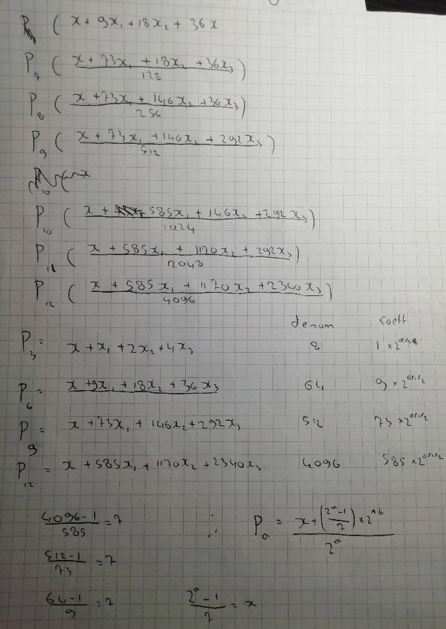 ( x + 9x₁ + 18x₂ + 36x
P₇ ( (x + 73x₁ + 18x₂ + 36x₃)/128 )
P₈ ( (x + 73x₁ + 146x₂ + 36x₃)/256 )
P₉ ( (x + 73x₁ + 146x₂ + 292x₃)/512 )
P₁₀ ( (x + 585x₁ + 146x₂ + 292x₃)/1024 )
P₁₁ ( (x + 585x₁ + 1170x₂ + 292x₃)/2048 )
P₁₂ ( (x + 585x₁ + 1170x₂ + 2340x₃)/4096 )
denum coeff
P₃ = x + x₁ + 2x₂ + 4x₃ 8 1 × 2
P₆ = x + 9x₁ + 18x₂ + 36x₃ 64 9 × 2
P₉ = x + 73x₁ + 146x₂ + 292x₃ 512 73 × 2
P₁₂ = x + 585x₁ + 1170x₂ + 2340x₃ 4096 585 × 2
(4096-1)/585 = 7 ∴ Pₐ = (x + ((2ᵃ-1)/7) × 2)/2ᵃ
(512-1)/73 = 7
(64-1)/9 = 7 (2ᵃ-1)/7 = x